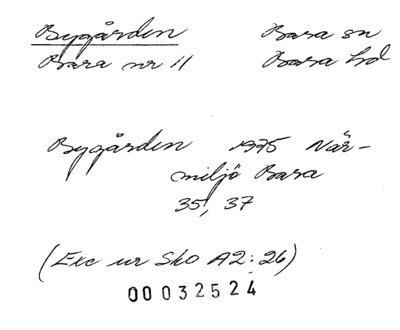 Bygården Bara sn
Bara nr 11 Bara hd
Bygården 1975 När-
miljö Bara
35, 37
(Exc ur Sko A2:26)
00032524